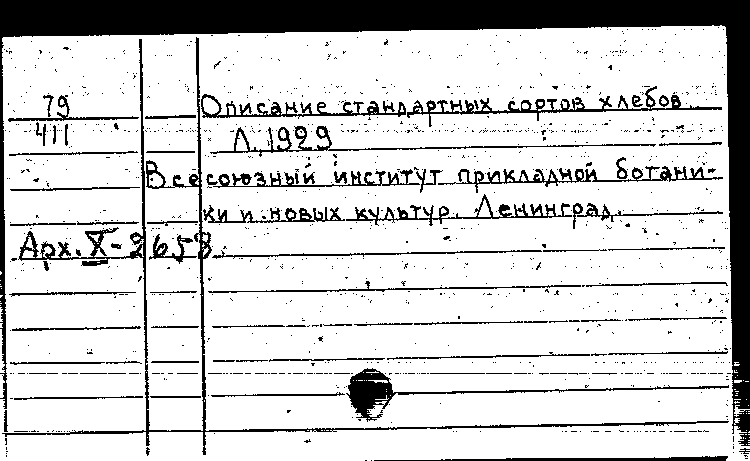 79
411
Описание стандартных сортов хлебов.
Л. 1929
Всесоюзный институт прикладной ботани-
ки и новых культур. Ленинград.
Арх. X-2658.